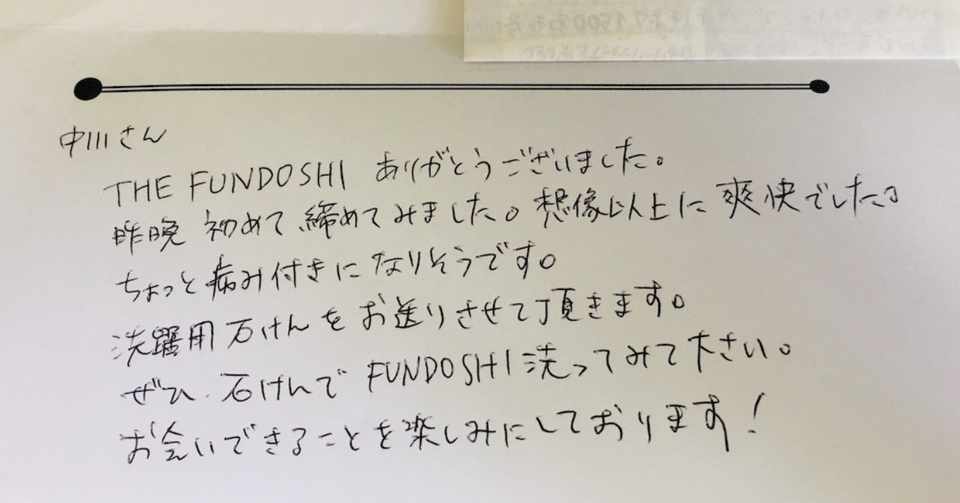 中川さん
THE FUNDOSHI ありがとうございました。
昨晩 初めて、締めてみました。想像以上に爽快でした。
ちょっと病み付きになりそうです。
洗濯用石けんをお送りさせて頂きます。
ぜひ、石けんで FUNDOSHI 洗ってみて下さい。
お会いできることを楽しみにしております！